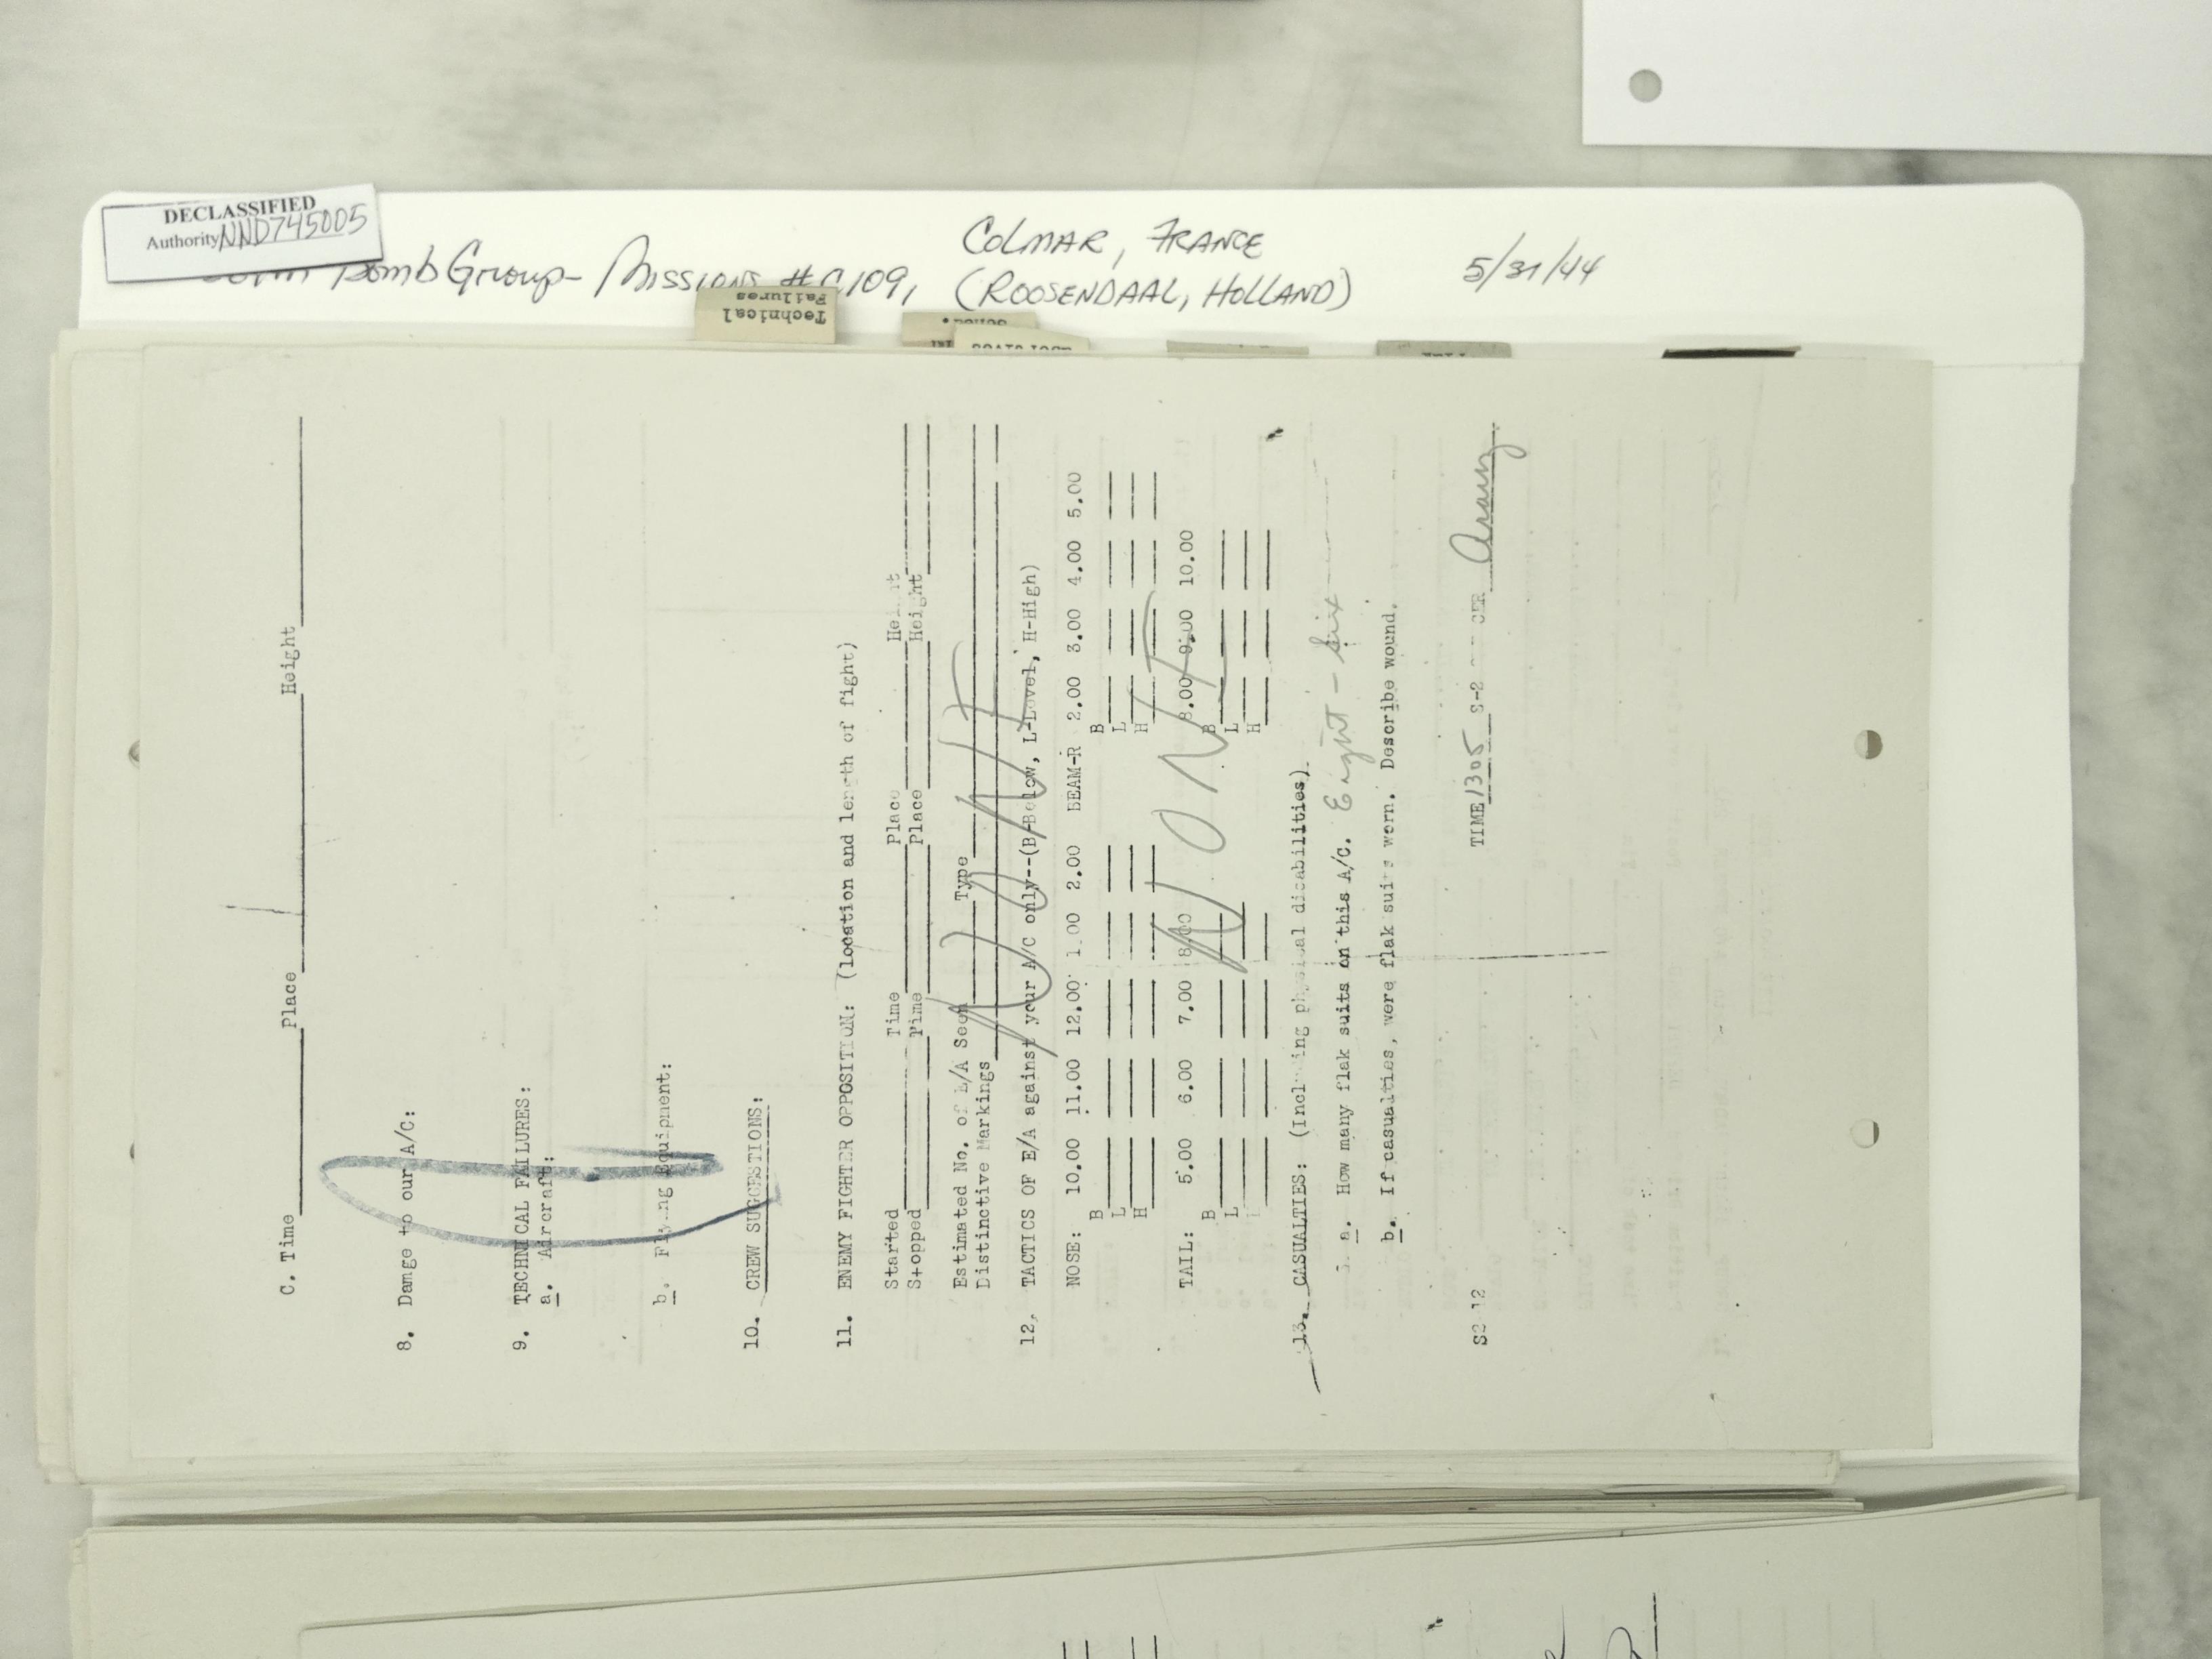 DECLASSIFIED
Authority NND745005
Bomb Group - Missions #C109,
COLMAR, FRANCE
(ROOSENDAAL, HOLLAND)
5/31/44
Technical
Failures
C. Time Place Height
8. Damage to our A/C:
9. TECHNICAL FAILURES:
a. Aircraft:
b. Flying Equipment:
10. CREW SUGGESTIONS:
11. ENEMY FIGHTER OPPOSITION: (location and length of fight)
Started Time Place Height
Stopped Time Place Height
Estimated No. of E/A Seen Type
Distinctive Markings
NONE
12. TACTICS OF E/A against your A/C only--(B-Below, L-Level, H-High)
NOSE: 10.00 11.00 12.00 1.00 2.00 BEAM-R 2.00 3.00 4.00 5.00
B B
L L
H H
TAIL: 5.00 6.00 7.00 8.00 8.00 9.00 10.00
B B
L L
H
NONE
13. CASUALTIES: (Including physical disabilities)
a. How many flak suits on this A/C. Eight - six
b. If casualties, were flak suits worn. Describe wound.
S2 12 TIME 1305 S-2